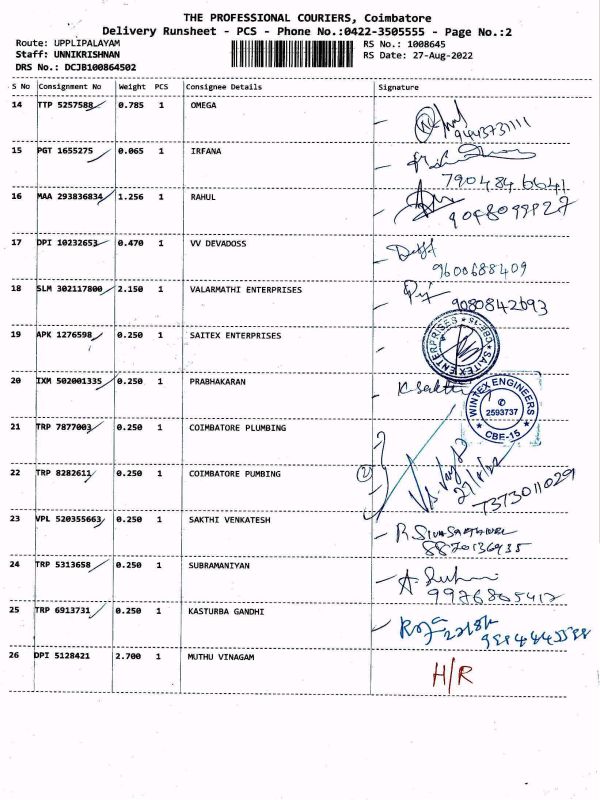 THE PROFESSIONAL COURIERS, Coimbatore
Delivery Runsheet - PCS - Phone No.:0422-3505555 - Page No.:2
Route: UPPLIPALAYAM RS No.: 1008645
Staff: UNNIKRISHNAN RS Date: 27-Aug-2022
DRS No.: DCJB100864502
S No Consignment No Weight PCS Consignee Details Signature
14 TTP 5257588 0.785 1 OMEGA
9443731111
15 PGT 1655275 0.065 1 IRFANA
7904846641
16 MAA 293836834 1.256 1 RAHUL
17 DPI 10232653 0.470 1 VV DEVADOSS
9600688409
18 SLM 302117800 2.150 1 VALARMATHI ENTERPRISES
9080842693
19 APK 1276598 0.250 1 SAITEX ENTERPRISES
SAITEX ENTERPRISES
20 IXM 502001335 0.250 1 PRABHAKARAN
K. Sakthi
WINTEX ENGINEERS
2593737
CBE-15
21 TRP 7877003 0.250 1 COIMBATORE PLUMBING
22 TRP 8282611 0.250 1 COIMBATORE PUMBING 2
7373011029
23 VPL 520355663 0.250 1 SAKTHI VENKATESH
8870136935
24 TRP 5313658 0.250 1 SUBRAMANIYAN
9976805412
25 TRP 6913731 0.250 1 KASTURBA GANDHI
26 DPI 5128421 2.700 1 MUTHU VINAGAM
H/R